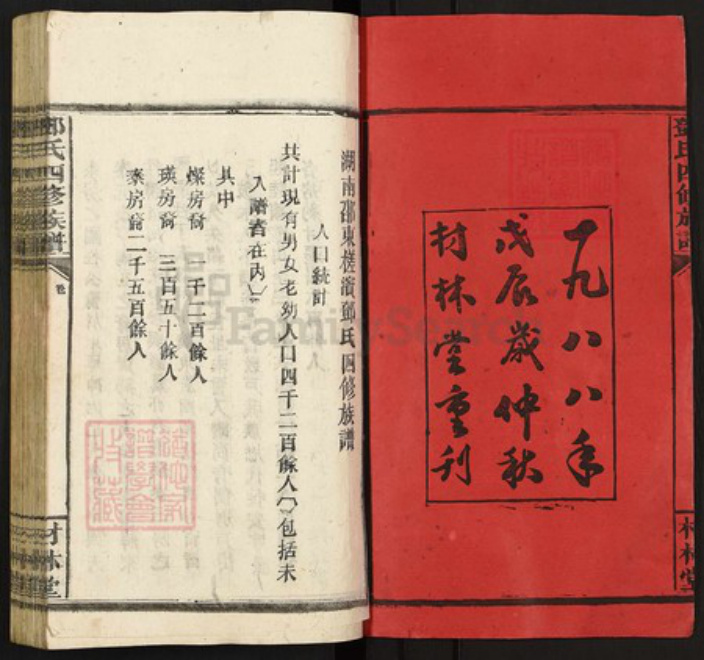 鄧氏四修族譜
一九八八年
戊辰歲仲秋
材林堂重刋
材林堂
湖南邵東槎濱鄧氏四修族譜
人口統計
共計現有男女老幼人口四千二百餘人（包括未
入譜者在內）
其中
燦房裔 一千二百餘人
瑛房裔 三百五十餘人
泰房裔二千五百餘人
鄧氏四修族譜
卷
材林堂
FamilySearch